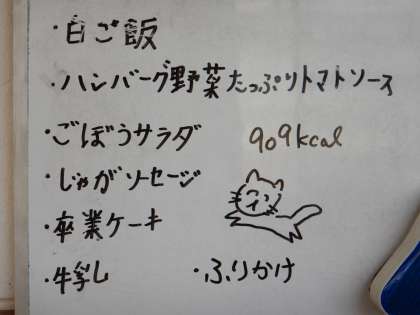 ・白ご飯
・ハンバーグ野菜たっぷりトマトソース
・ごぼうサラダ 909kcal
・じゃがソーセージ
・卒業ケーキ
・牛乳 ・ふりかけ